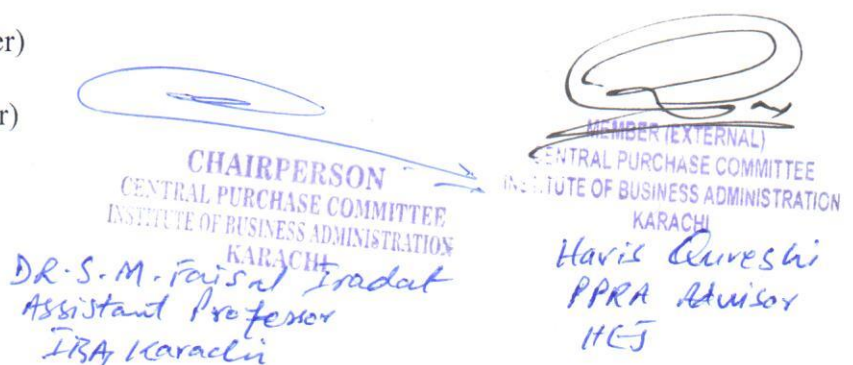 er)
r)
CHAIRPERSON
CENTRAL PURCHASE COMMITTEE
INSTITUTE OF BUSINESS ADMINISTRATION
KARACHI
DR. S. M. Faisal Iradat
Assistant Professor
IBA, Karachi
MEMBER (EXTERNAL)
CENTRAL PURCHASE COMMITTEE
INSTITUTE OF BUSINESS ADMINISTRATION
KARACHI
Haris Qureshi
PPRA Advisor
HEJ